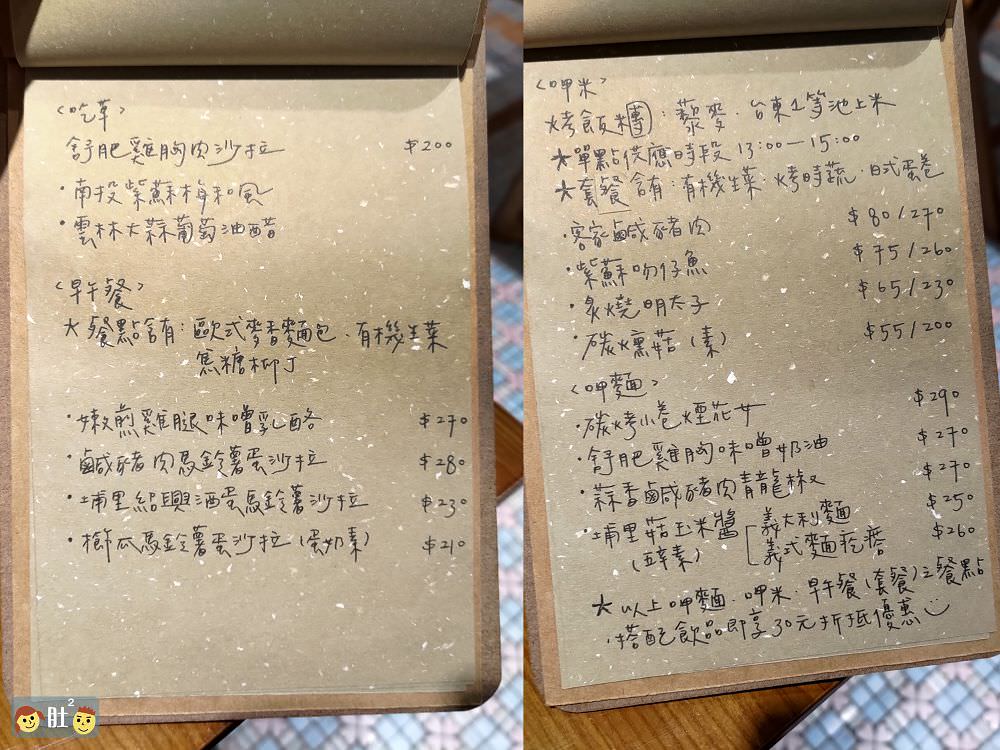 <吃草>
舒肥雞胸肉沙拉 $200
・南投紫蘇梅和風
・雲林大蒜葡萄油醋
<早午餐>
★餐點含有：歐式麥香麵包、有機生菜
焦糖柳丁
・嫩煎雞腿味噌乳酪 $270
・鹹豬肉馬鈴薯蛋沙拉 $280
・埔里紹興酒蛋馬鈴薯沙拉 $230
・櫛瓜馬鈴薯蛋沙拉(蛋奶素) $210
肚2
<呷米>
烤飯糰：藜麥、台東1等池上米
★單點供應時段 13:00－15:00
★套餐含有：有機生菜、烤時蔬、日式蛋卷
・客家鹹豬肉 $80/270
・紫蘇吻仔魚 $75/260
・炙燒明太子 $65/230
・碳燻菇(素) $55/200
<呷麵>
・碳烤小卷煙花女 $290
・舒肥雞胸味噌奶油 $270
・蒜香鹹豬肉青龍椒 $270
・埔里菇玉米醬 [義大利麵 $250
(五辛素) 義式麵疙瘩 $260
★以上呷麵、呷米、早午餐(套餐)之餐點
，搭配飲品即享30元折抵優惠